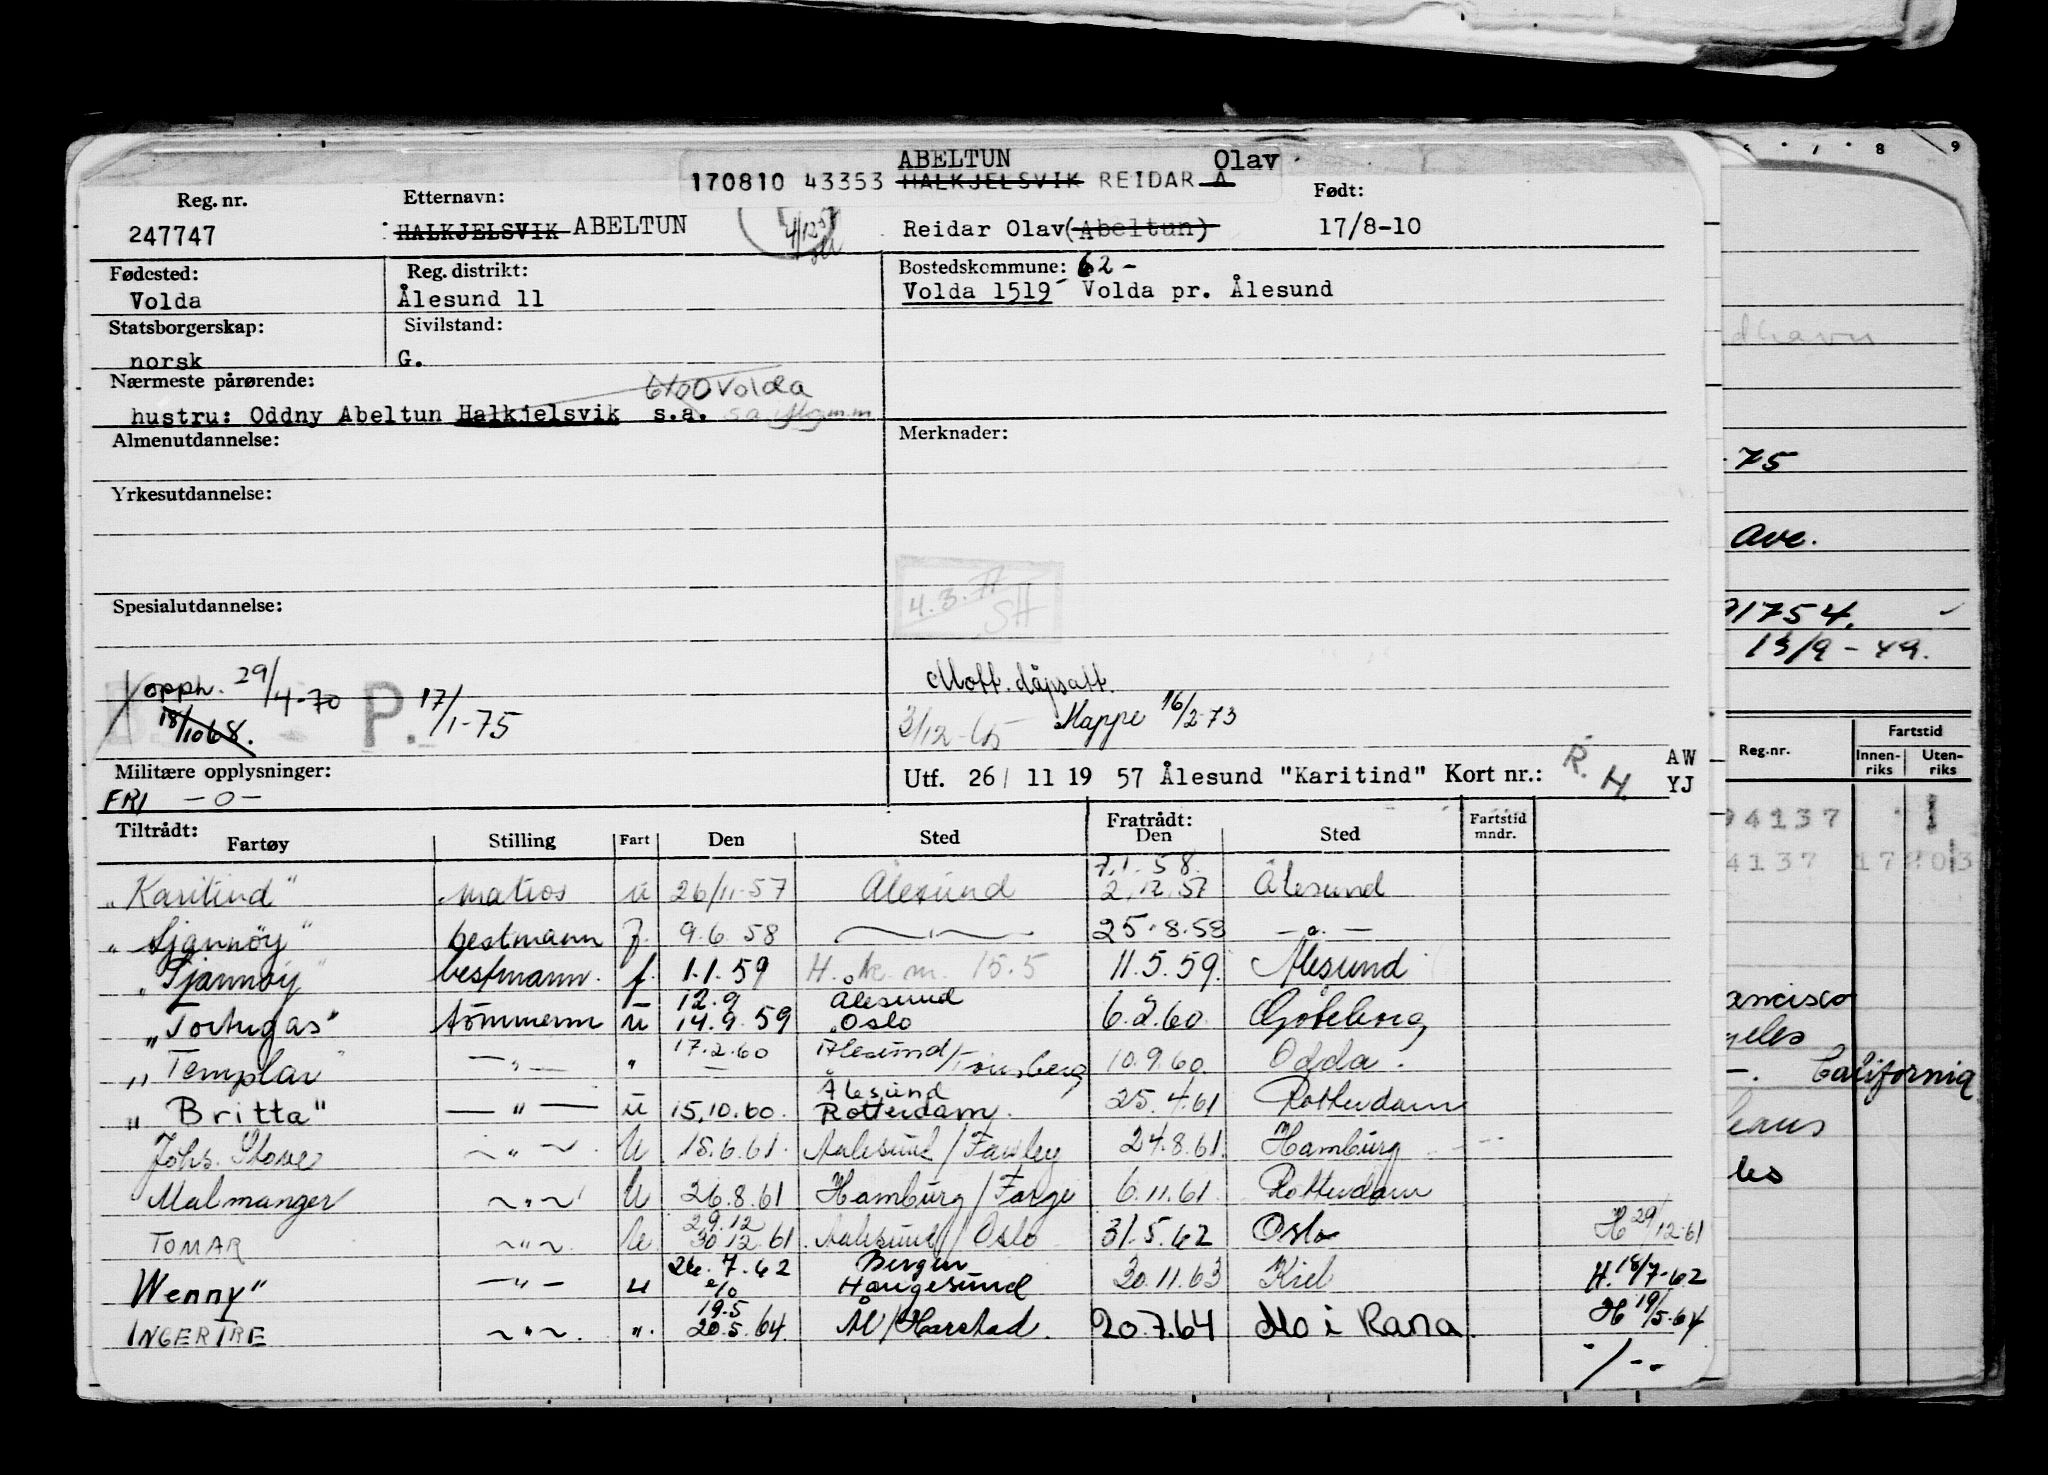 ABELTUN Olav
170810 43353 HALKJELSVIK REIDAR A
Reg. nr. Etternavn: Født:
247747 HALKJELSVIK ABELTUN Reidar Olav (Abeltun) 17/8-10
Fødested: Reg. distrikt: Bostedskommune: 62-
Volda Ålesund 11 Volda 1519 Volda pr. Ålesund
Statsborgerskap: Sivilstand:
norsk G.
Nærmeste pårørende: 6100 Volda
hustru: Oddny Abeltun Halkjelsvik s.a.
Almenutdannelse: Merknader:
Yrkesutdannelse:
4.3.
SH
Spesialutdannelse:
opph. 29/4-70 P. 17/1-75 Mott. dåpsatt.
18/10 68. 3/12-65 Mappe 16/2-73
Militære opplysninger: Utf. 26/ 11 19 57 Ålesund "Karitind" Kort nr.: R. H. AW
FRI -0- YJ
Tiltrådt: Fratrådt: Fartstid
Fartøy Stilling Fart Den Sted Den Sted mndr.
7.1.58.
"Karitind" matros u 26/11-57 Ålesund 2.12.57 Ålesund
" " bestmann f. 9.6.58 25.8.58 -"-
" " bestmann. f. 1.1.59 H. 15.5 11.5.59. Ålesund
12.9 Ålesund
"Tortugas" tømmerm u 14.9.59 Oslo 6.2.60 Gøteborg
"Templar" -"- " 17.2.60 Ålesund/Tønsberg 10.9.60. Odda.
Ålesund
"Britta" -"- u 15.10.60. Rotterdam. 25.4.61 Rotterdam
Johs. Stove -"- U 15.6.61. Aalesund/Fawley 24.8.61. Hamburg
Malmanger -"- U 26.8.61 Hamburg/Farge 6.11.61. Rotterdam
29.12
TOMAR -"- U 30 12.61 Aalesund/Oslo 31.5.62 Oslo H 29/12-61
26.7.62 Bergen
Wenny" -"- u Haugesund 30.11.63 Kiel H. 18/7-62
19.5
INGERTRE -"- ". 20.5.64. Ål/Harstad. 20.7.64 Mo i Rana. H 19/5-64
8 9
75
Ave.
1754.
13/9-49.
Fartstid
Reg.nr. Innen-riks Uten-riks
94137 1
4137
ancisco
California